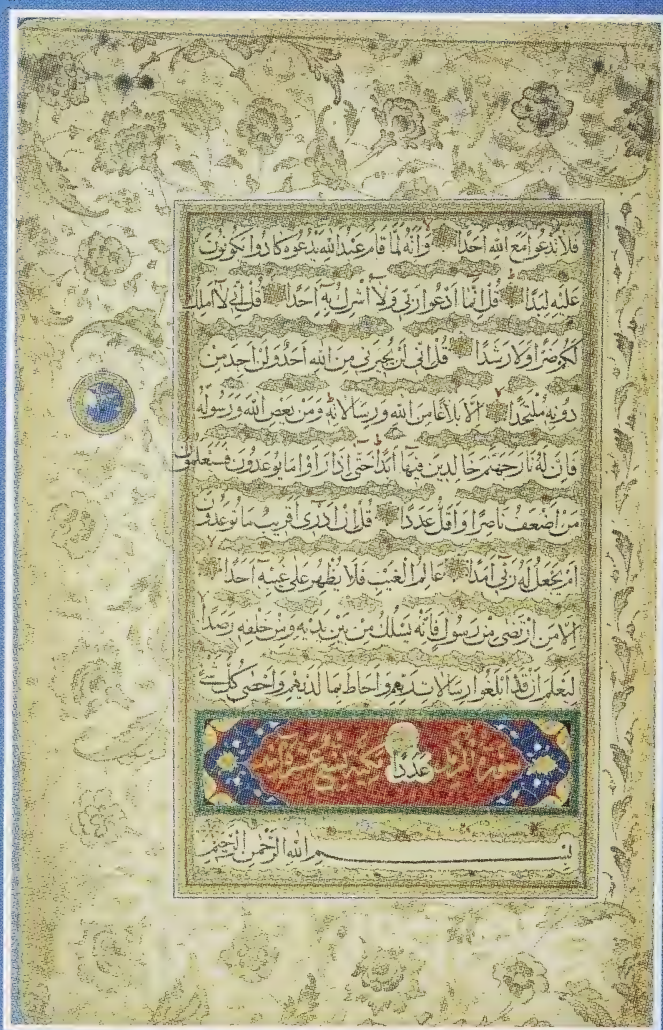 فلا تدعوا مع الله احدا وانه لما قام عبد الله يدعوه كادوا يكونون
عليه لبدا قل انما ادعوا ربى ولا اشرك به احدا قل انى لا املك
لكم ضرا ولا رشدا قل انى لن يجيرنى من الله احد ولن اجد من
دونه ملتحدا الا بلاغا من الله ورسالاته ومن يعص الله ورسوله
فان له نار جهنم خالدين فيها ابدا حتى اذا راوا ما يوعدون فسيعلمون
من اضعف ناصرا واقل عددا قل ان ادرى اقريب ما توعدون
ام يجعل له ربى امدا عالم الغيب فلا يظهر على غيبه احدا
الا من ارتضى من رسول فانه يسلك من بين يديه ومن خلفه رصدا
ليعلم ان قد ابلغوا رسالات ربهم واحاط بما لديهم واحصى كل شئ
سورة المزمل عددا مكية تسع عشر آية
بسم الله الرحمن الرحيم